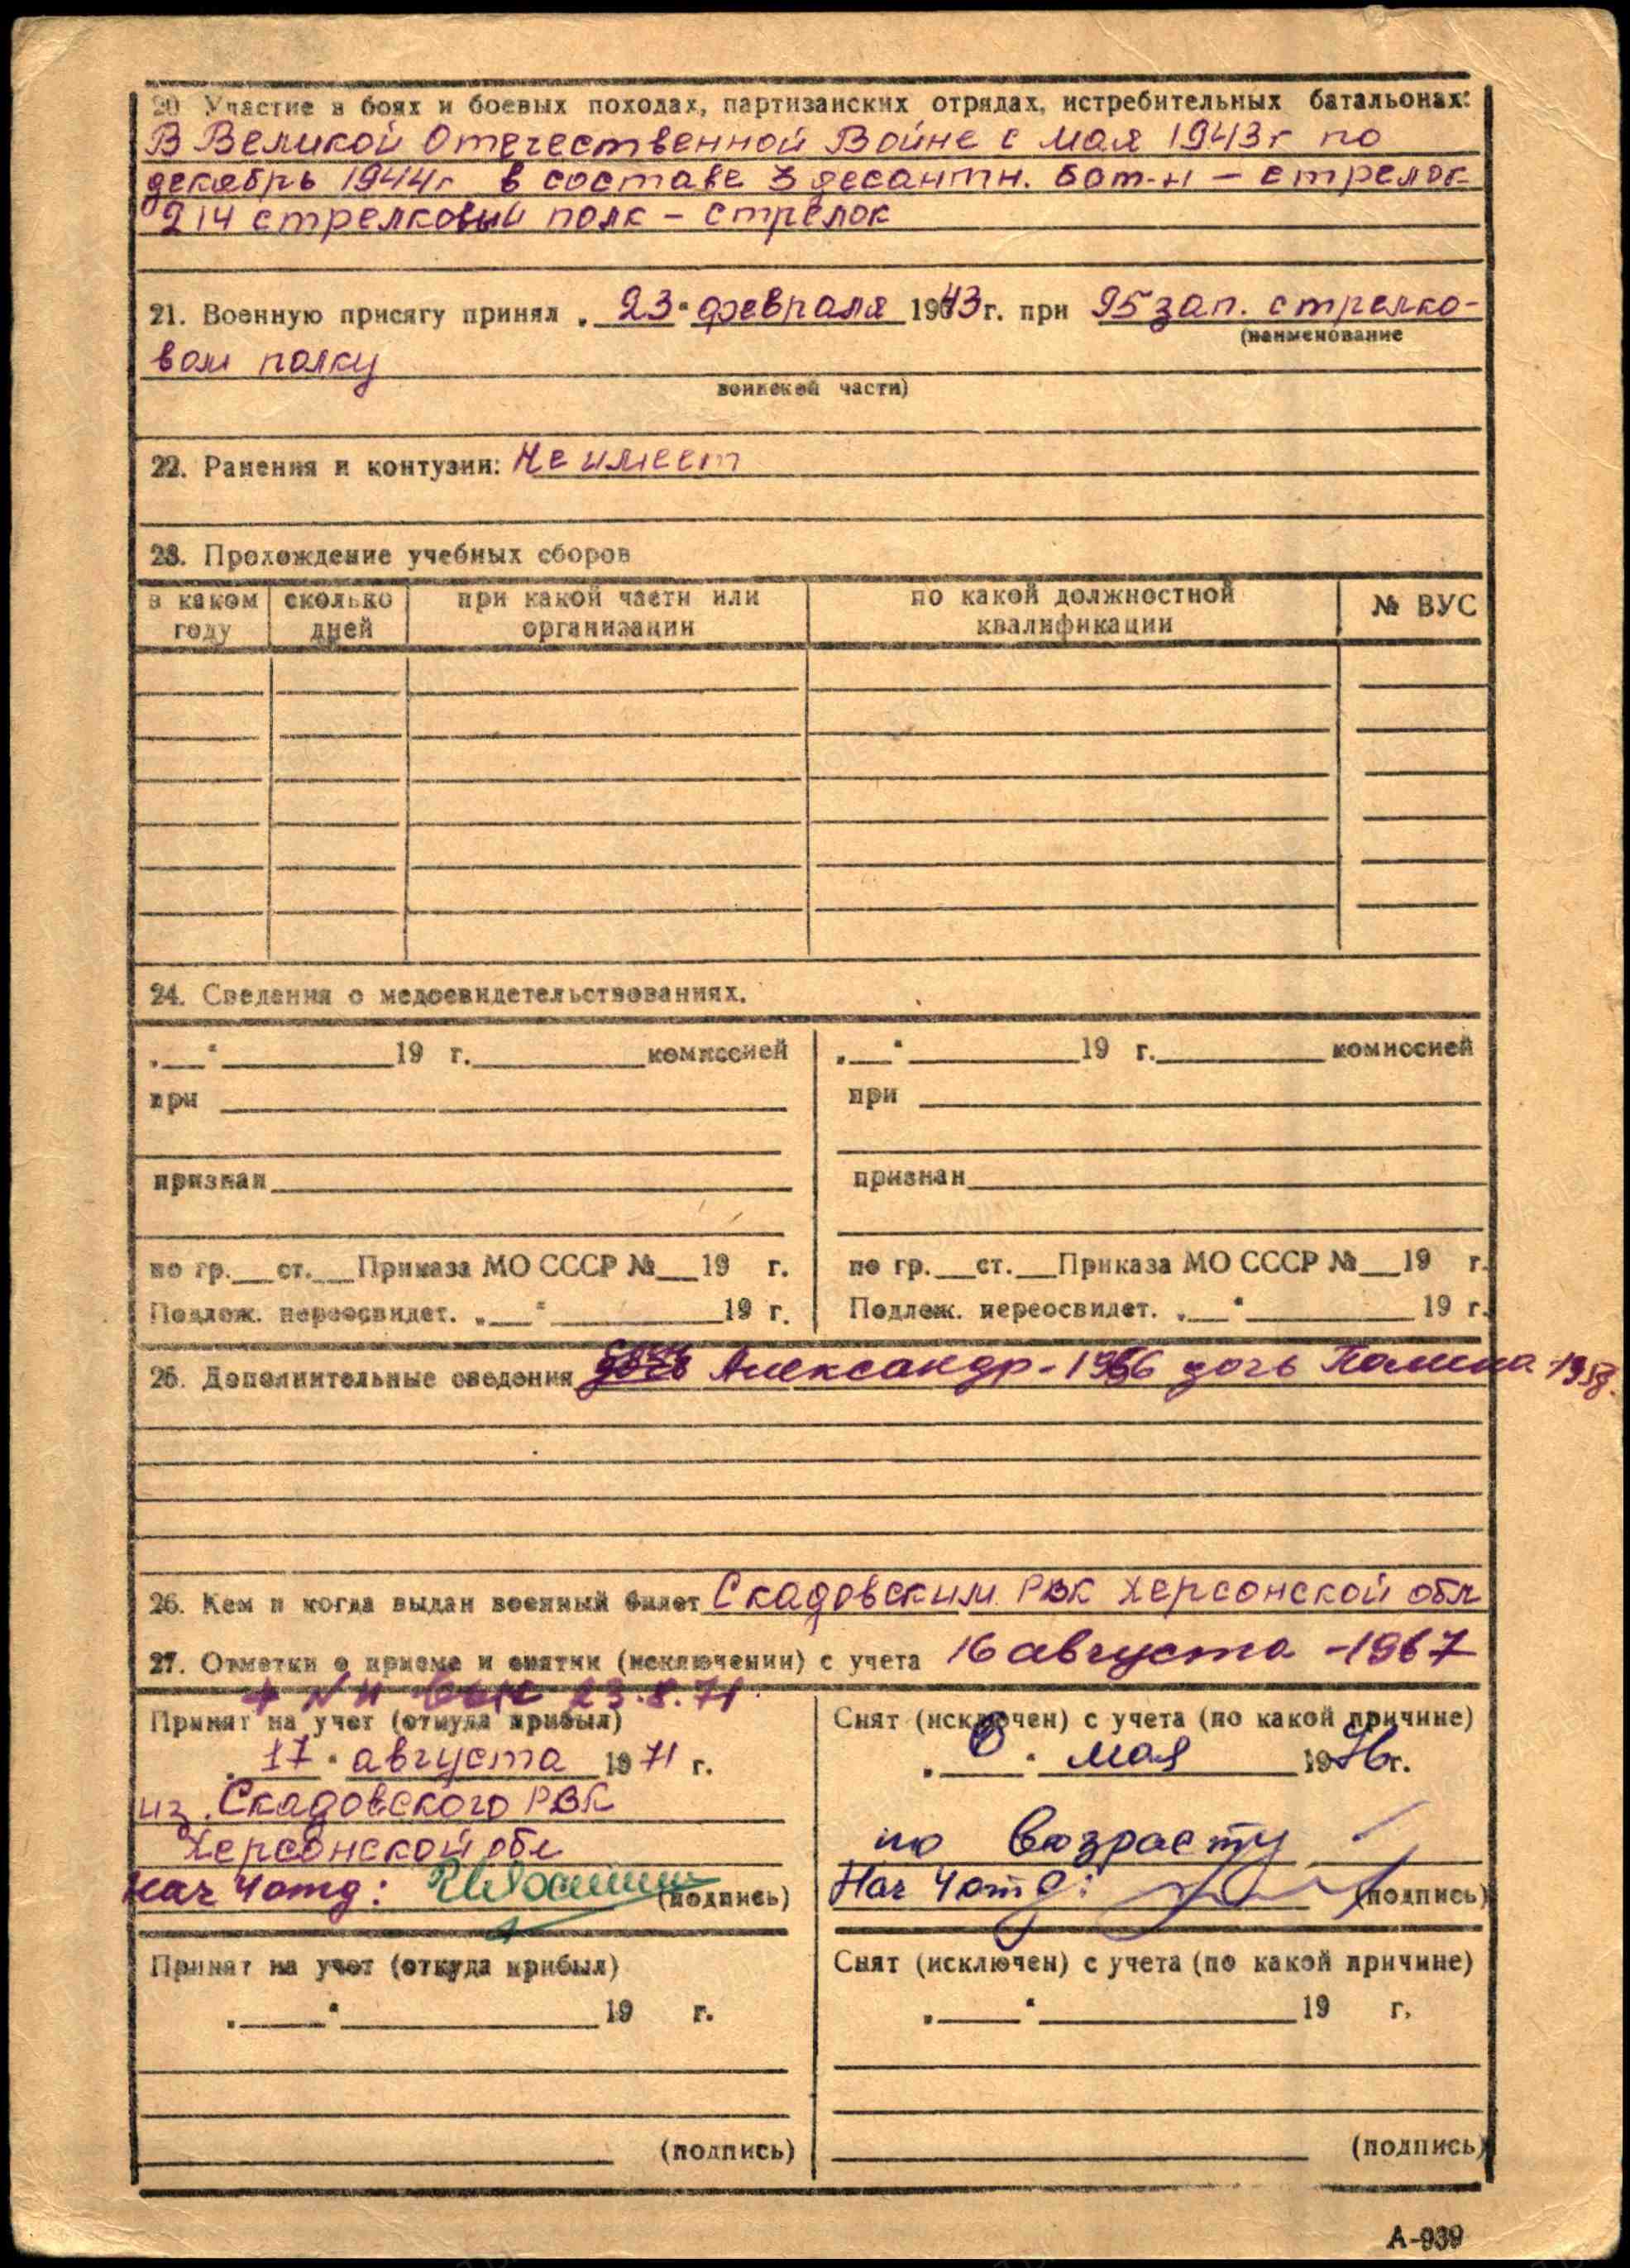 20 Участие в боях и боевых походах, партизанских отрядах, истребительных батальонах:
В Великой Отечественной Войне с мая 1943г по
декабрь 1944г в составе 3 десантн. бат-н – стрелок
214 стрелковый полк – стрелок
21. Военную присягу принял „23“ февраля 1943г. при 95 зап. стрелко-
(наименование
вом полку
воинской части)
22. Ранения и контузии: Не имеет
23. Прохождение учебных сборов
в каком году сколько дней при какой части или организации по какой должностной квалификации № ВУС
24. Сведения о медосвидетельствованиях.
„__“ ____ 19 г. ____ комиссией „__“ ____ 19 г. ____ комиссией
при при
признан признан
по гр.__ст.__Приказа МО СССР №__19 г. по гр.__ст.__Приказа МО СССР №__19 г.
Подлеж. переосвидет. „__“ ____ 19 г. Подлеж. переосвидет. „__“ ____ 19 г.
25. Дополнительные сведения Александр - 1956 дочь 1958.
26. Кем и когда выдан военный билет Скадовским РВК Херсонской обл
27. Отметки о приеме и снятии (исключении) с учета 16 августа - 1967
23.8.71.
Принят на учет (откуда прибыл) Снят (исключен) с учета (по какой причине)
„17“ августа 1971 г. мая 1976г.
из Скадовского РВК
Херсонской обл по возрасту
Нач 4 отд: (подпись) Нач 4 отд: (подпись)
Принят на учет (откуда прибыл) Снят (исключен) с учета (по какой причине)
„__“ ____ 19 г. „__“ ____ 19 г.
(подпись) (подпись)
А-939